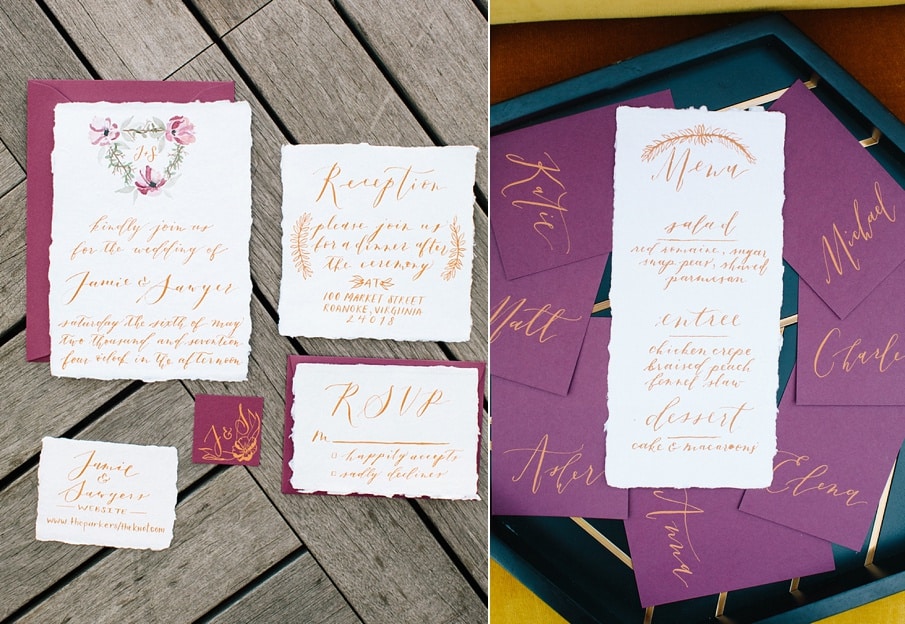 J&S
kindly join us
for the wedding of
Jamie & Sawyer
saturday the sixth of may
two thousand and seventeen
four o'clock in the afternoon
Reception
please join us
for a dinner after
the ceremony
AT
100 MARKET STREET
ROANOKE, VIRGINIA
24018
RSVP
M
happily accepts
sadly declines
J&S
Jamie
&
Sawyers
WEBSITE
Menu
salad
red romaine, sugar
snap pear, shaved
parmesan
entree
chicken crepe
braised peach
fennel slaw
dessert
cake & macaroons
Katie
Michael
Matt
Charlie
Asher
Elena
Anna